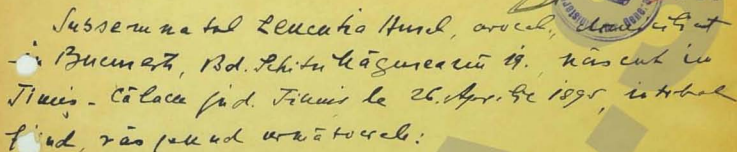 Subsemnatul Leucutia Aurel, avocat, domiciliat
in Bucuresti, Bd. Schitu Măgureanu 19. născut in
Timiș - jud. Timiș le 26. Aprilie 1895, intrebat
fiind, răspund următoarele: